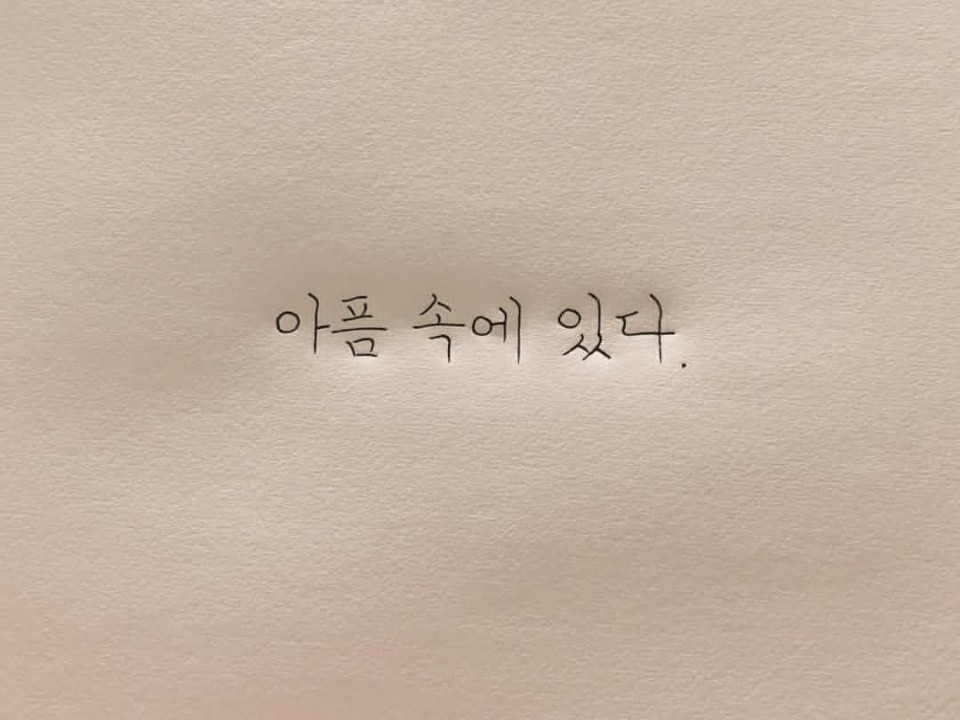 아픔 속에 있다.